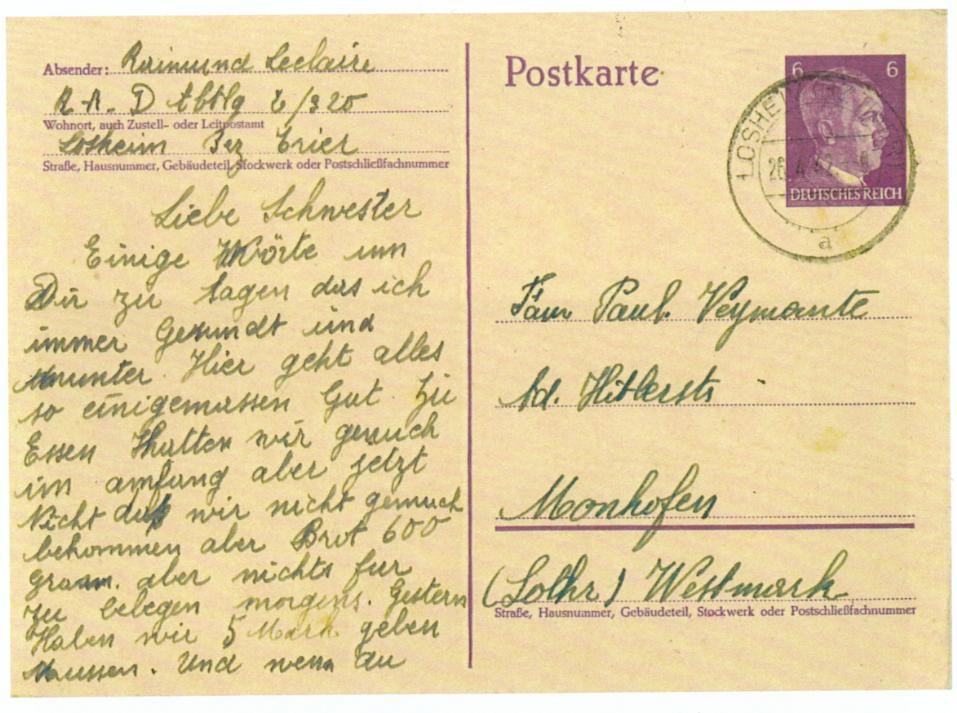 Absender: Raimund Leclaire
R.A.D Abtlg 2/320
Wohnort, auch Zustell- oder Leitpostamt
Losheim Bez Trier
Straße, Hausnummer, Gebäudeteil, Stockwerk oder Postschließfachnummer
Liebe Schwester
Einige Wörte um
Dir zu sagen das ich
immer Gesundt und
Munter. Hier geht alles
so einigemassen Gut. Zu
Essen Hatten wir genuch
im amfang aber jetzt
Nicht daß wir nicht genuch
bekommen aber Brot 600
Gram. aber nichts fur
zu belegen morgens. Gestern
Haben wir 5 Mark geben
Mussen. Und wenn du
Postkarte
6 6
DEUTSCHES REICH
LOSHEIM
26.4.42
a
Frau Paul. Veymante
Ad. Hitlerstr
Monhofen
(Lothr) Westmark
Straße, Hausnummer, Gebäudeteil, Stockwerk oder Postschließfachnummer